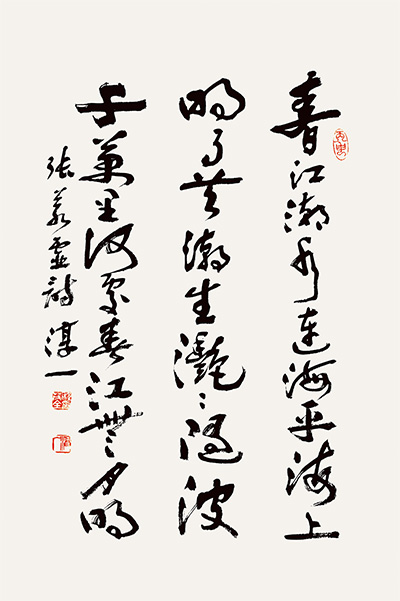 春江潮水連海平海上
明月共潮生灩〻隨波
千萬里何處春江無月明
張若虛詩 淳一